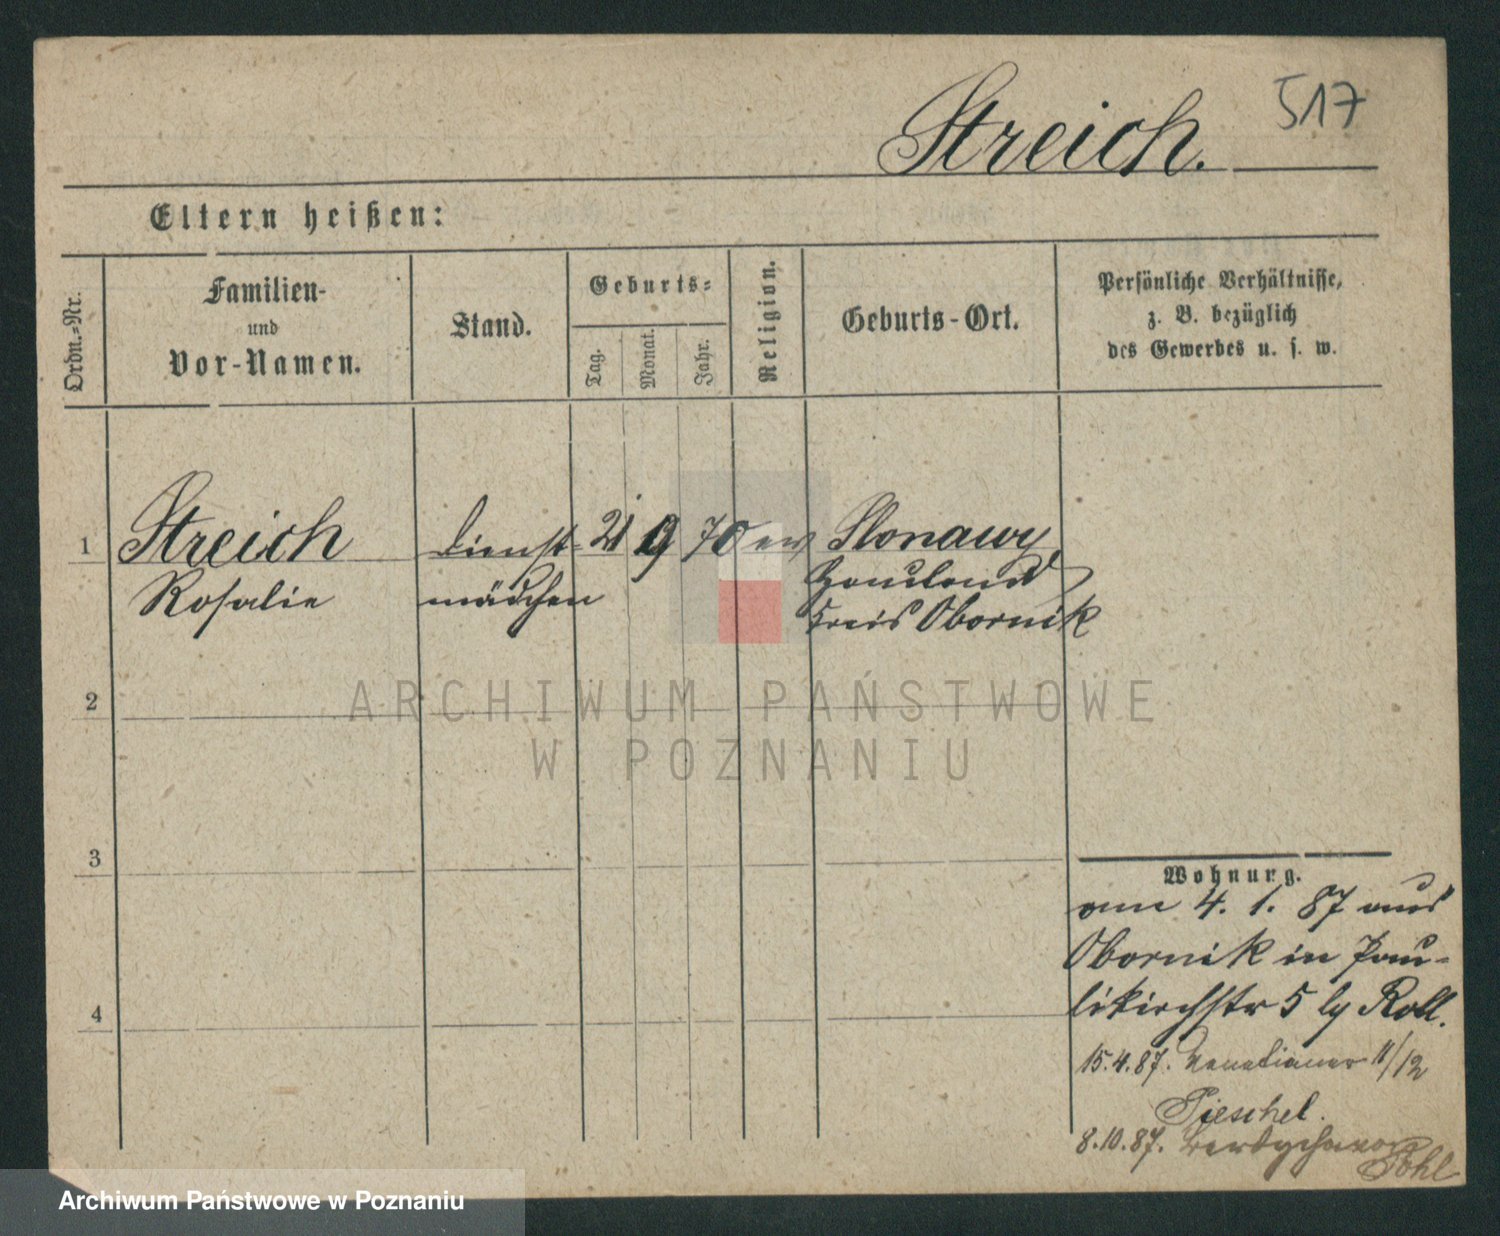 517
Streich.
Eltern heißen:
Ordn.-Nr.
Familien-
und
Vor-Namen.
Stand.
Geburts-
Tag.
Monat.
Jahr.
Religion.
Geburts-Ort.
Persönliche Verhältnisse,
z. B. bezüglich
des Gewerbes u. s. w.
1 Streich Dienst- 21 9 70 ev Slonawy
Rosalie mädchen Hauland
Kreis Obornik
2
ARCHIWUM PAŃSTWOWE
W POZNANIU
3
Wohnung.
am 4. 1. 87 aus
Obornik in Pau-
4
likirchstr 5 by Roll.
15.4.87. Venetianer 11/12
Pieschel.
8.10.87. Berdychowo
Pohl
Archiwum Państwowe w Poznaniu